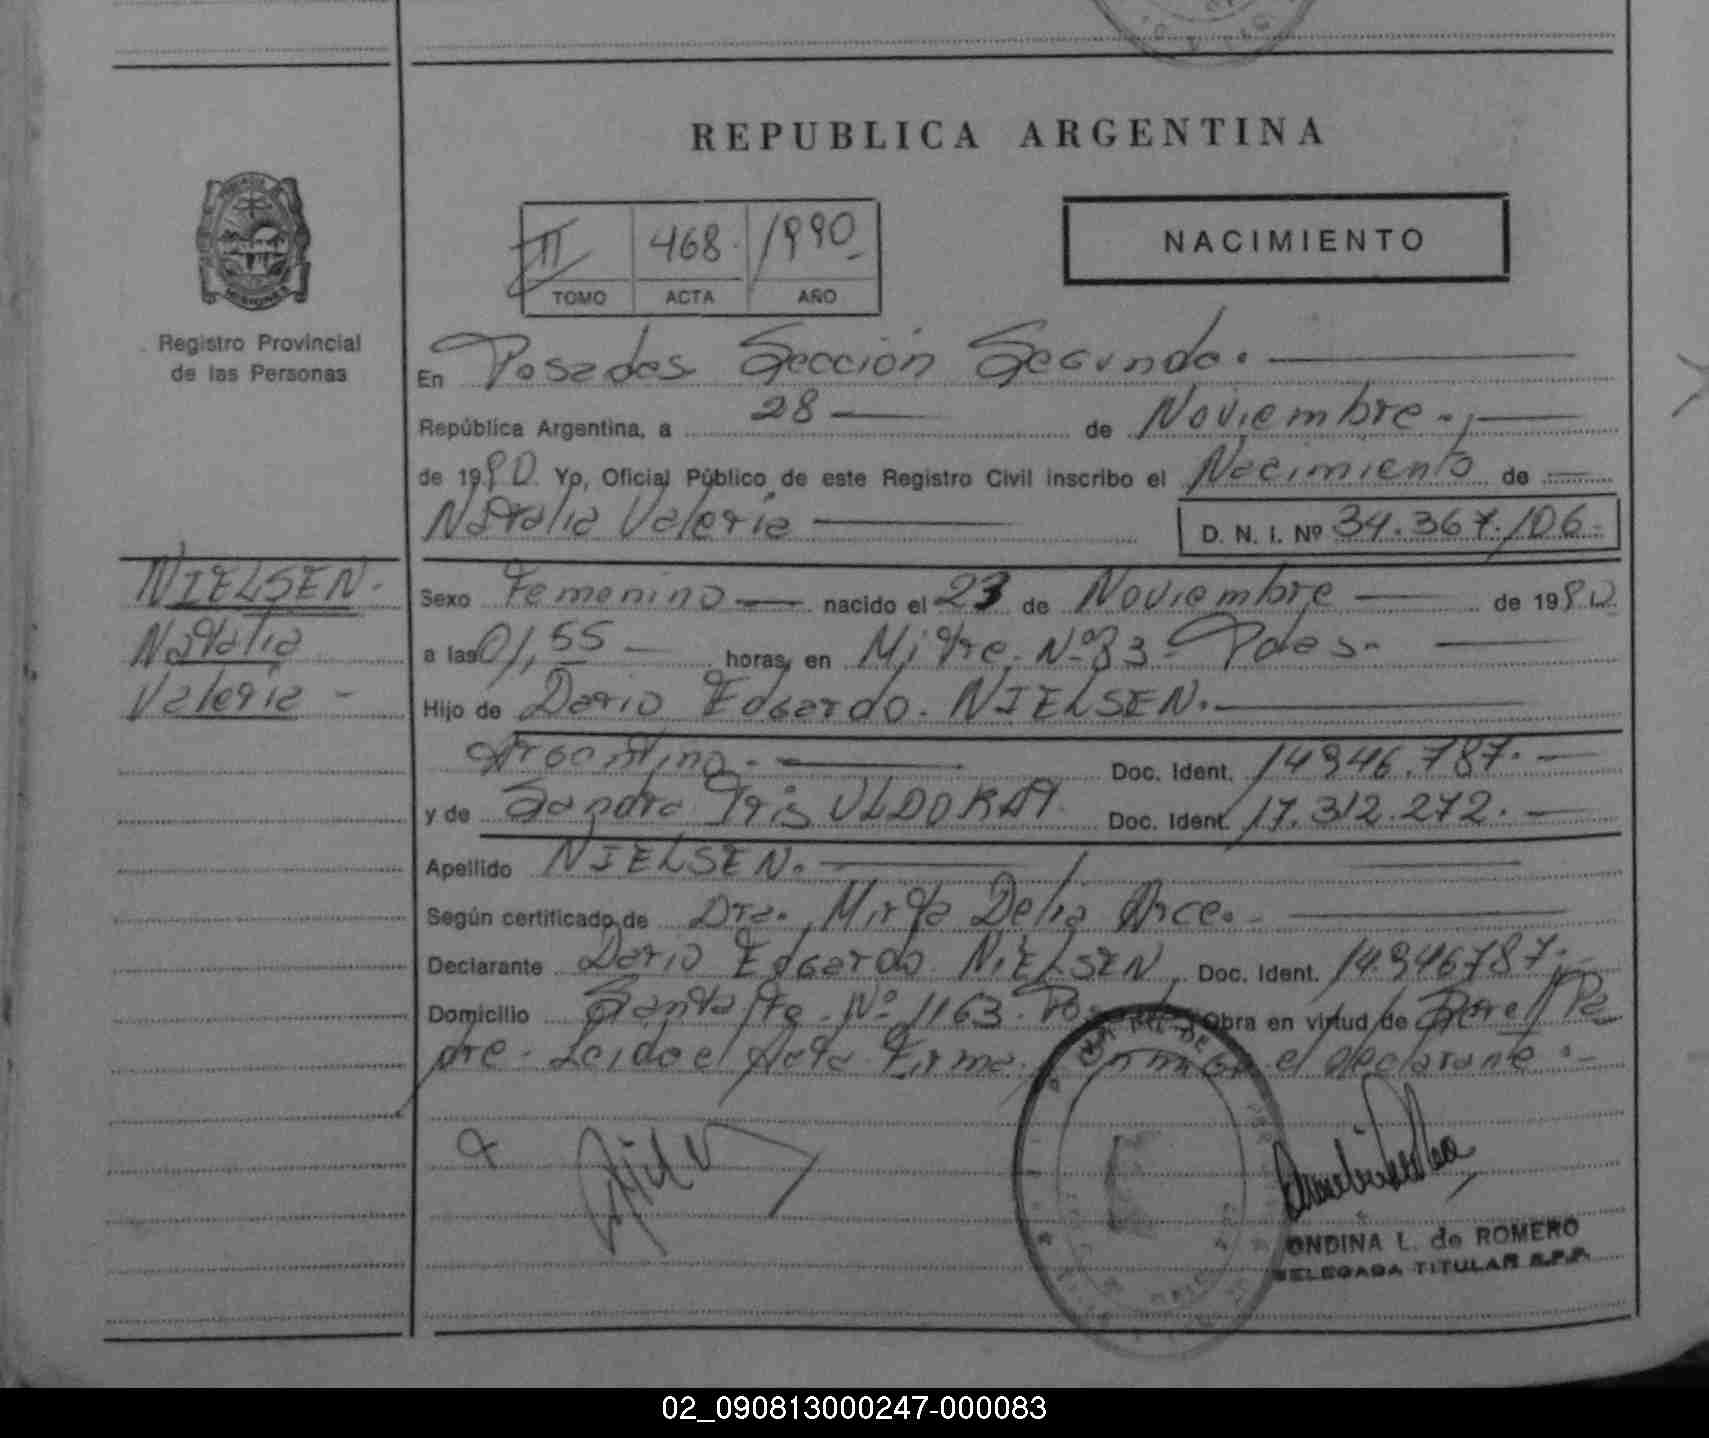 REPUBLICA ARGENTINA
II 468. 1990
TOMO ACTA AÑO
NACIMIENTO
Registro Provincial
de las Personas
En Posadas Sección Segunda.
República Argentina, a 28 de Noviembre.,
de 1990. Yo, Oficial Público de este Registro Civil inscribo el Nacimiento de
Natalia Valeria D. N. I. Nº 34.367.106.
NIELSEN.
Natalia
Valeria
Sexo Femenino nacido el 23 de Noviembre de 1990
a las 01,55 horas, en Mitre. Nº 83 Pdas.
Hijo de Dario Edgardo. NIELSEN.
Argentino. Doc. Ident. 14946.787.
y de Sandra Iris Doc. Ident. 17.312.272.
Apellido NIELSEN.
Según certificado de Dra. Mirta Delia Arce.
Declarante Dario Edgardo NIELSEN Doc. Ident. 14.946787.
Domicilio Santa Fe. Nº 1163. Obra en virtud de Ser el Pa
dre. Leida el Acta Firma el declarante.
ONDINA L. de ROMERO
DELEGADA TITULAR R.P.P.
02_090813000247-000083